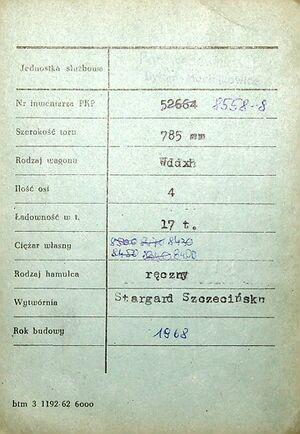 Jednostka służbowa
Nr inwentarza PKP 52664 8558-8
Szerokość toru 785 mm
Rodzaj wagonu Wddxh
Ilość osi 4
Ładowność w t. 17 t.
8420
Ciężar własny 8400
Rodzaj hamulca ręczny
Wytwórnia Stargard Szczecińsku
Rok budowy 1968
btm 3 1192-62 6000